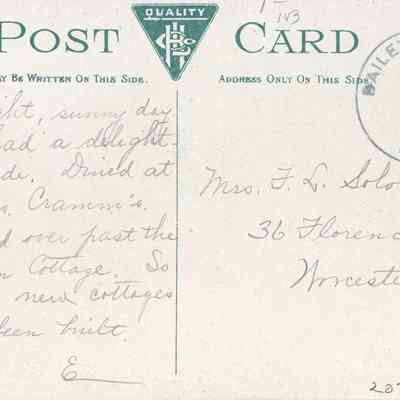 QUALITY
POST CARD
143
BAILEY
AY BE WRITTEN ON THIS SIDE.
ADDRESS ONLY ON THIS SIDE
ght, sunny day
had a delight-
de. Dined at
s. Cramm's.
d over past the
n Cottage. So
new cottages
been built.
E
Mrs. F. L. Solo
36 Florenc
Worceste
207